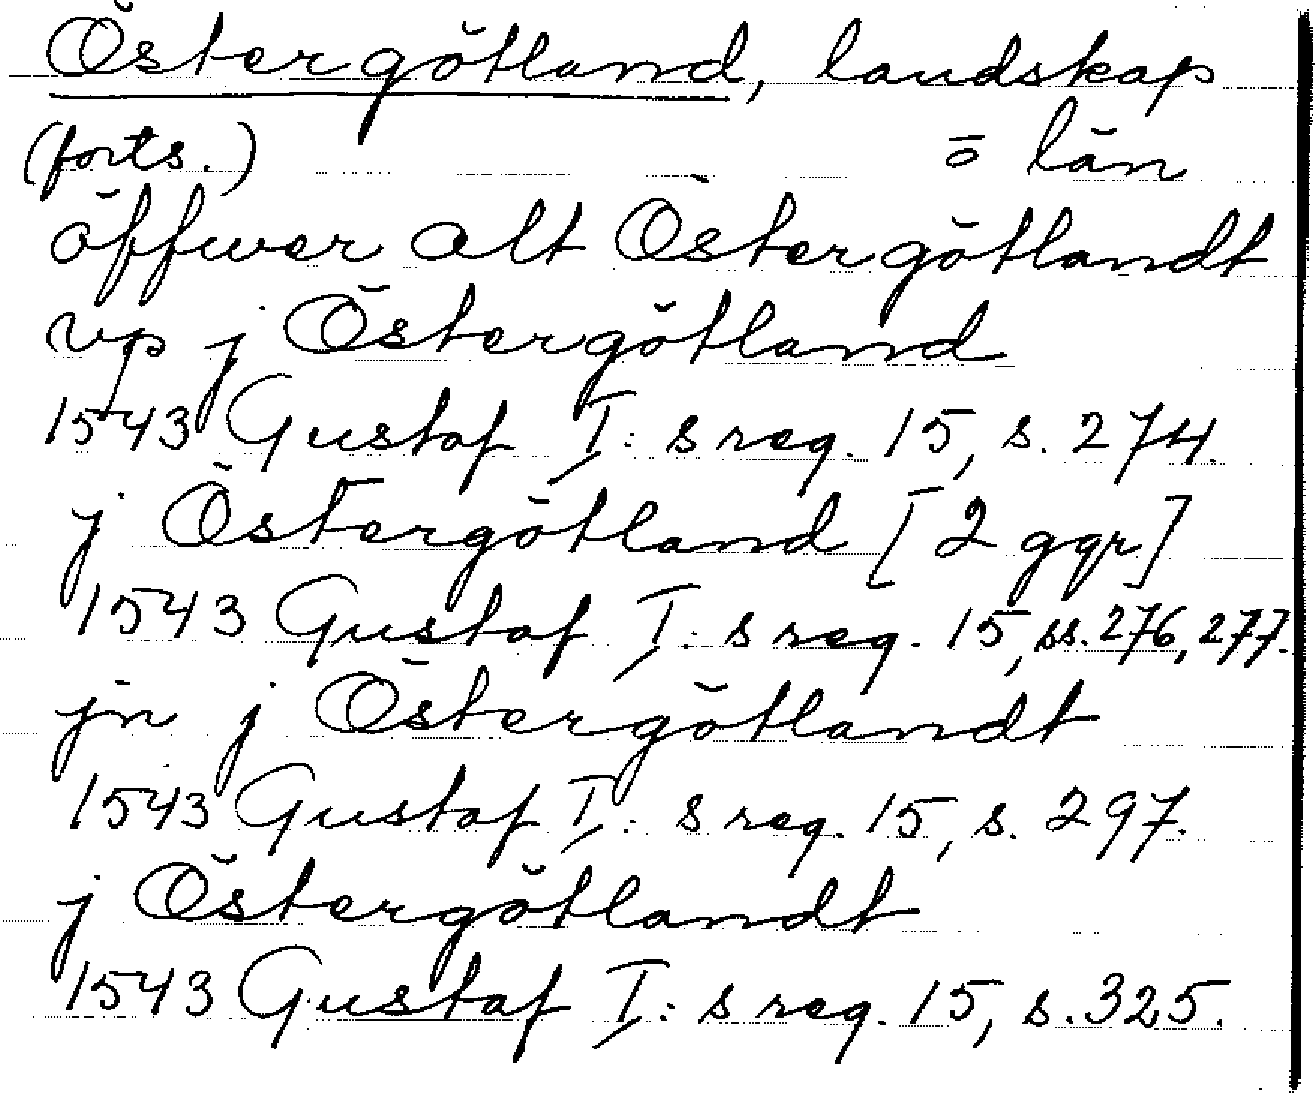 Östergötland, landskap
(forts.) ō län
öffwer alt Östergötlandt
vp j Östergötland
1543 Gustaf I:s reg. 15, s. 274.
j Östergötland [2 ggr]
1543 Gustaf I:s reg. 15, ss. 276, 277.
jn j Östergötlandt
1543 Gustaf I:s reg. 15, s. 297.
j Östergötlandt
1543 Gustaf I:s reg. 15, s. 325.